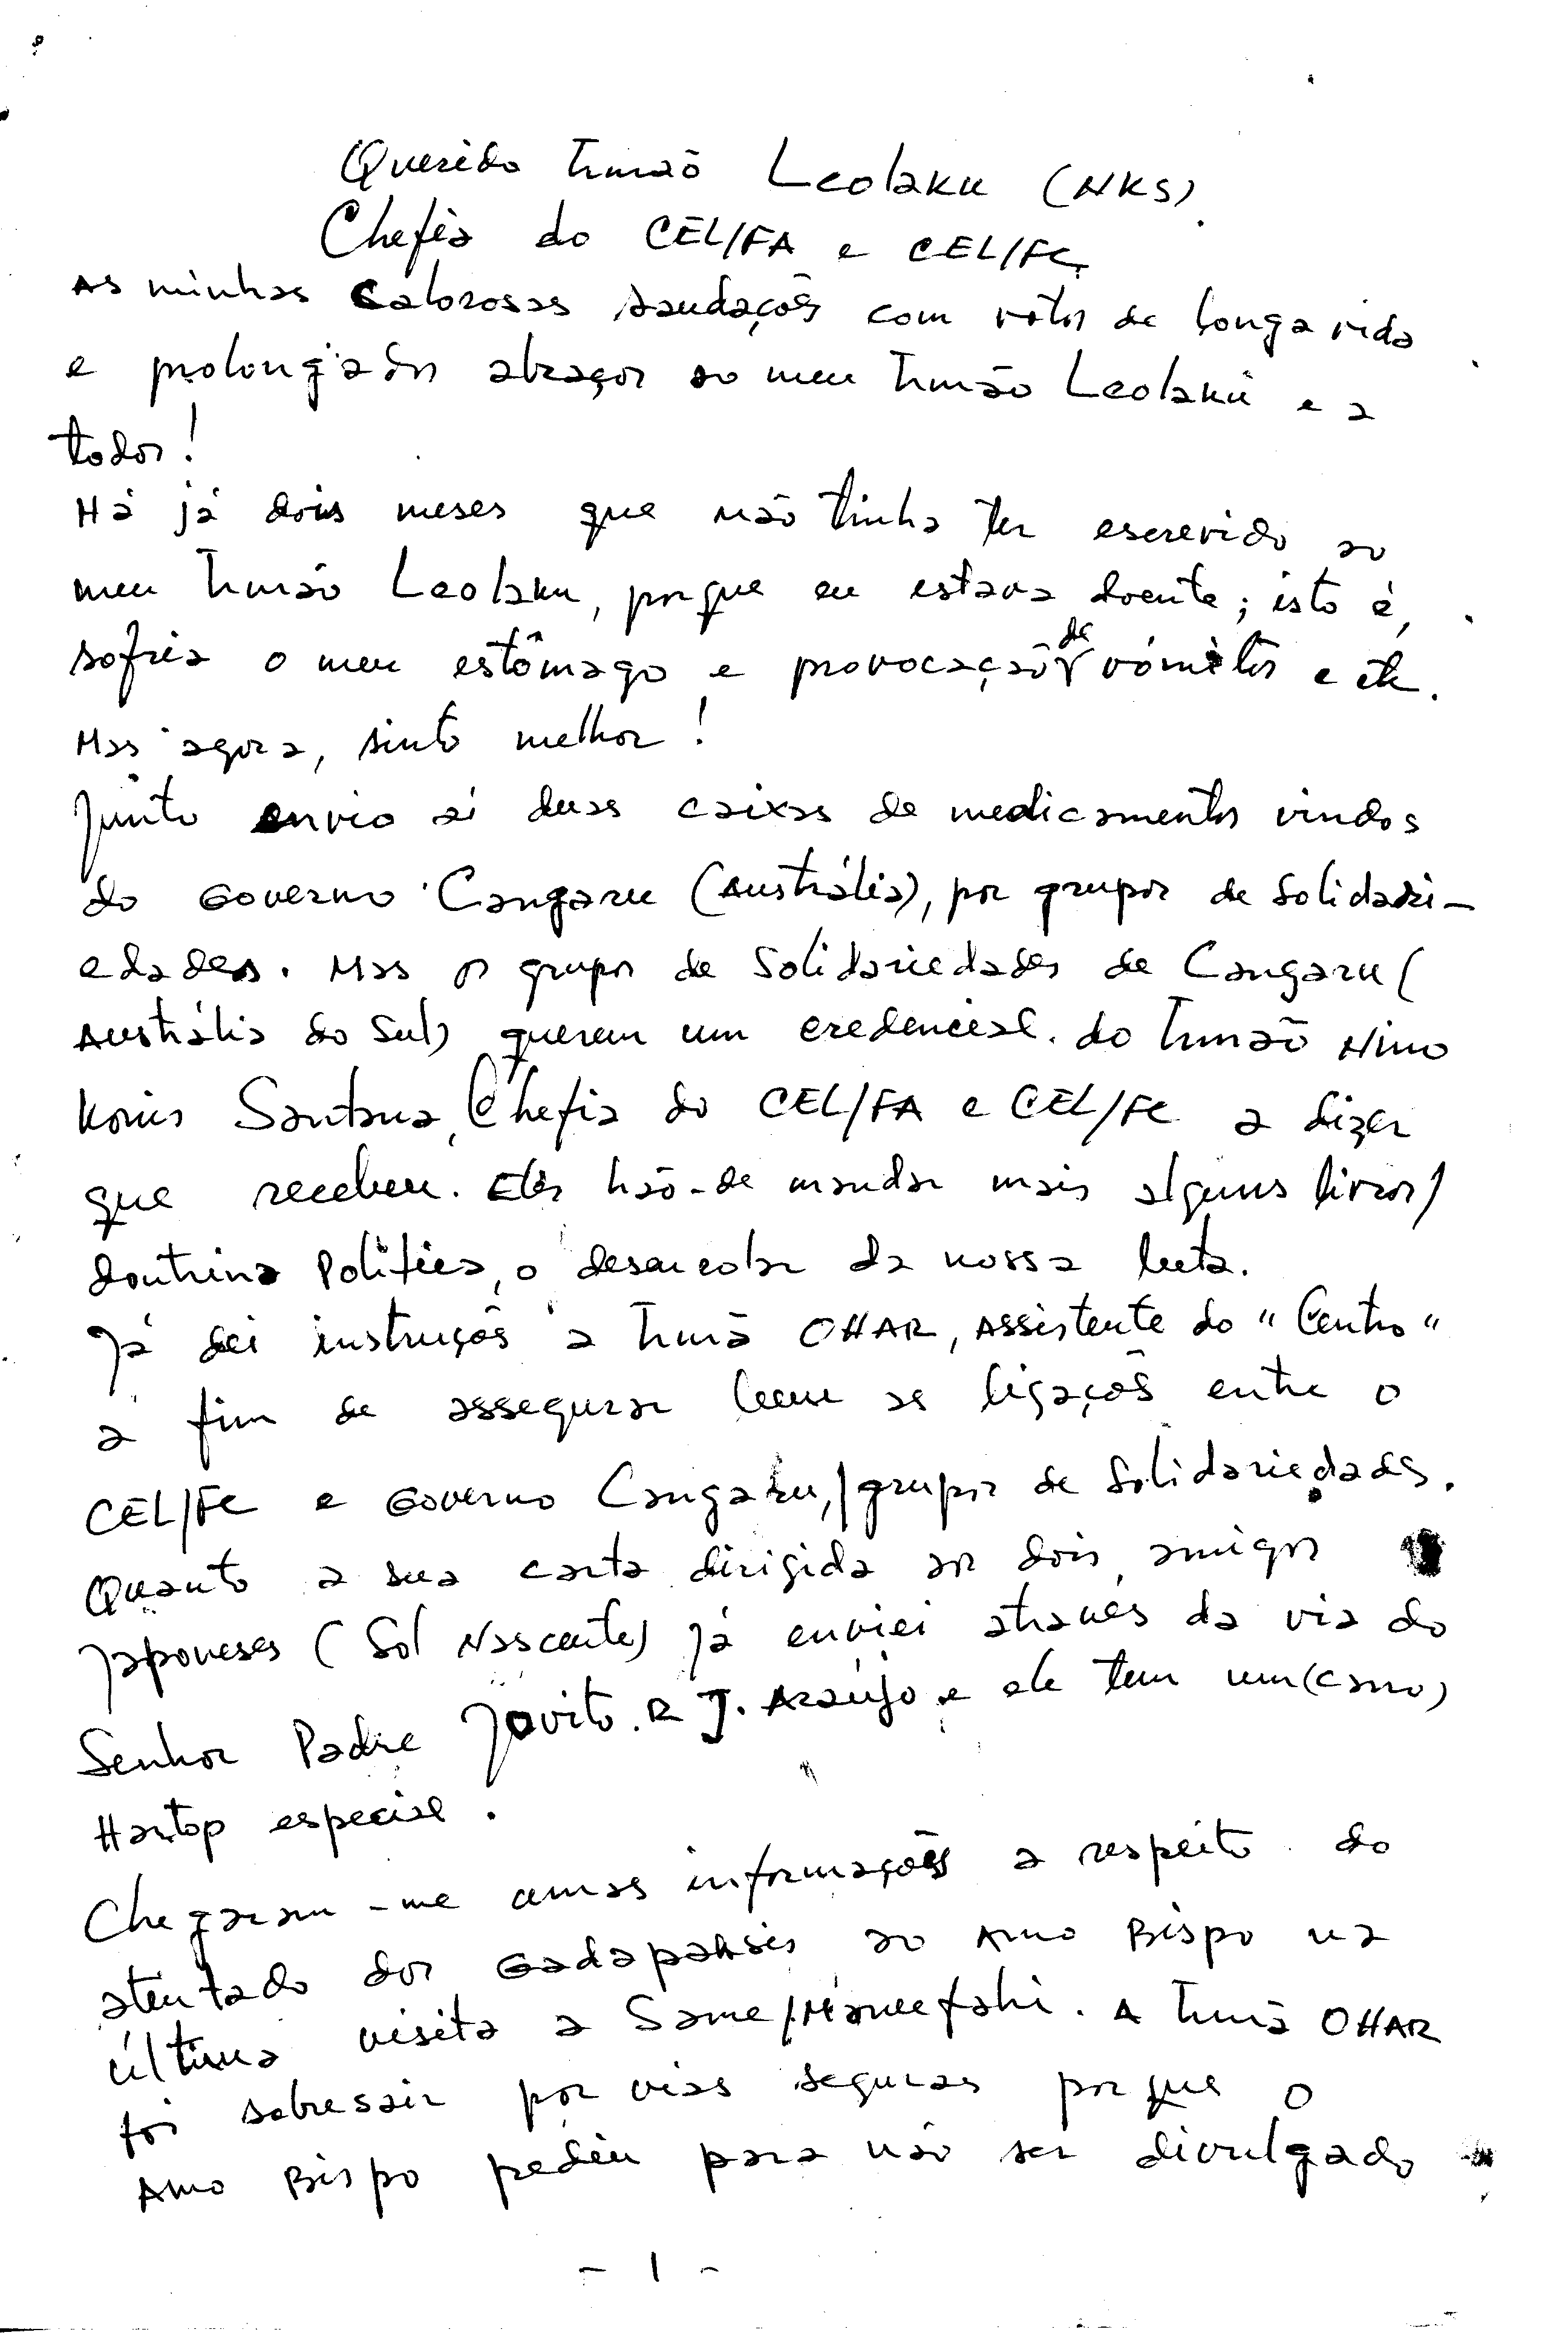 Querido Irmão Leolaku (NKS)
Chefia do CEL/FA e CEL/FC
As minhas calorosas saudações com votos de longa vida
e prolongados abraços ao meu Irmão Leolaku e a
todos!
Há já dois meses que não tinha ter escrevido ao
meu Irmão Leolaku, porque eu estava doente; isto é,
sofria o meu estômago e provocação de vómitos e etc.
Mas agora, sinto melhor!
Junto envio aí duas caixas de medicamentos vindos
do Governo Cangaru (Austrália), por grupos de Solidari-
edades. Mas os grupos de Solidariedades de Cangaru (
Austrália do Sul) querem um credencial do Irmão Nino
Konis Santana, Chefia do CEL/FA e CEL/FC a dizer
que recebeu. Eles hão-de mandar mais alguns livros/
doutrina Política, o desenrolar da nossa luta.
Já dei instruções a Irmã OHAR, Assistente do "Centro"
a fim de assegurar bem as ligações entre o
CEL/FC e Governo Cangaru,/grupos de Solidariedades.
Quanto a sua carta dirigida aos dois amigos
Japoneses (Sol Nascente) já enviei através da via do
Senhor Padre Jovito. R J. Araújo e ele tem um (cano)
Hartop especial.
Chegaram-me umas informações a respeito do
atentado dos Gadapaksis ao Amo Bispo na
última visita a Same/Manufahi. A Irmã OHAR
foi sobressair por vias seguras porque o
Amo Bispo pediu para não ser divulgado
- 1 -